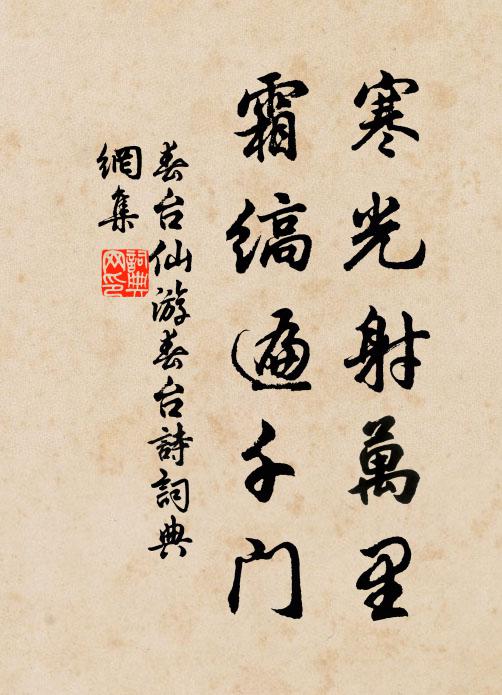 寒光射萬里
霜縞遍千门
春台仙游春台詩詞典
網集
詞典网印